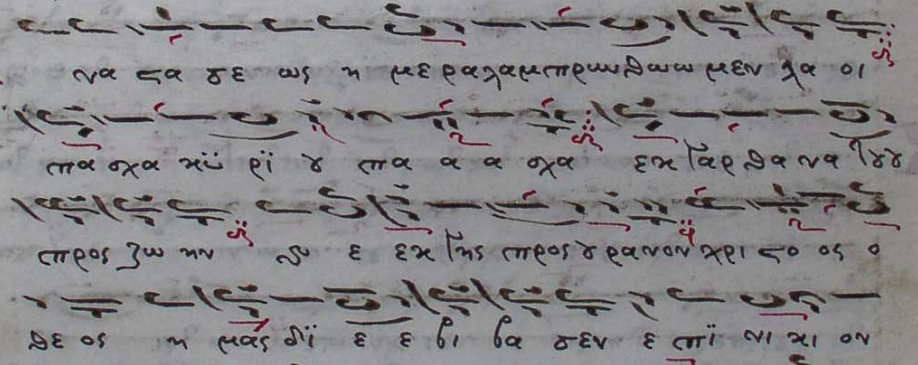 να ϛα σε ως η με ραλαμπρυυνθωωω μεν λα οι
πα σχα κϋ ρϊ ȣ πα α α σχα εκ γαρ θα να τȣȣ
προς ζω ην ϗ ε εκ γης προς ȣρανον χρι ϛο ος ο
θε ος η μας δϊ ε ε βι βα σεν ε πϊ νι κι ον